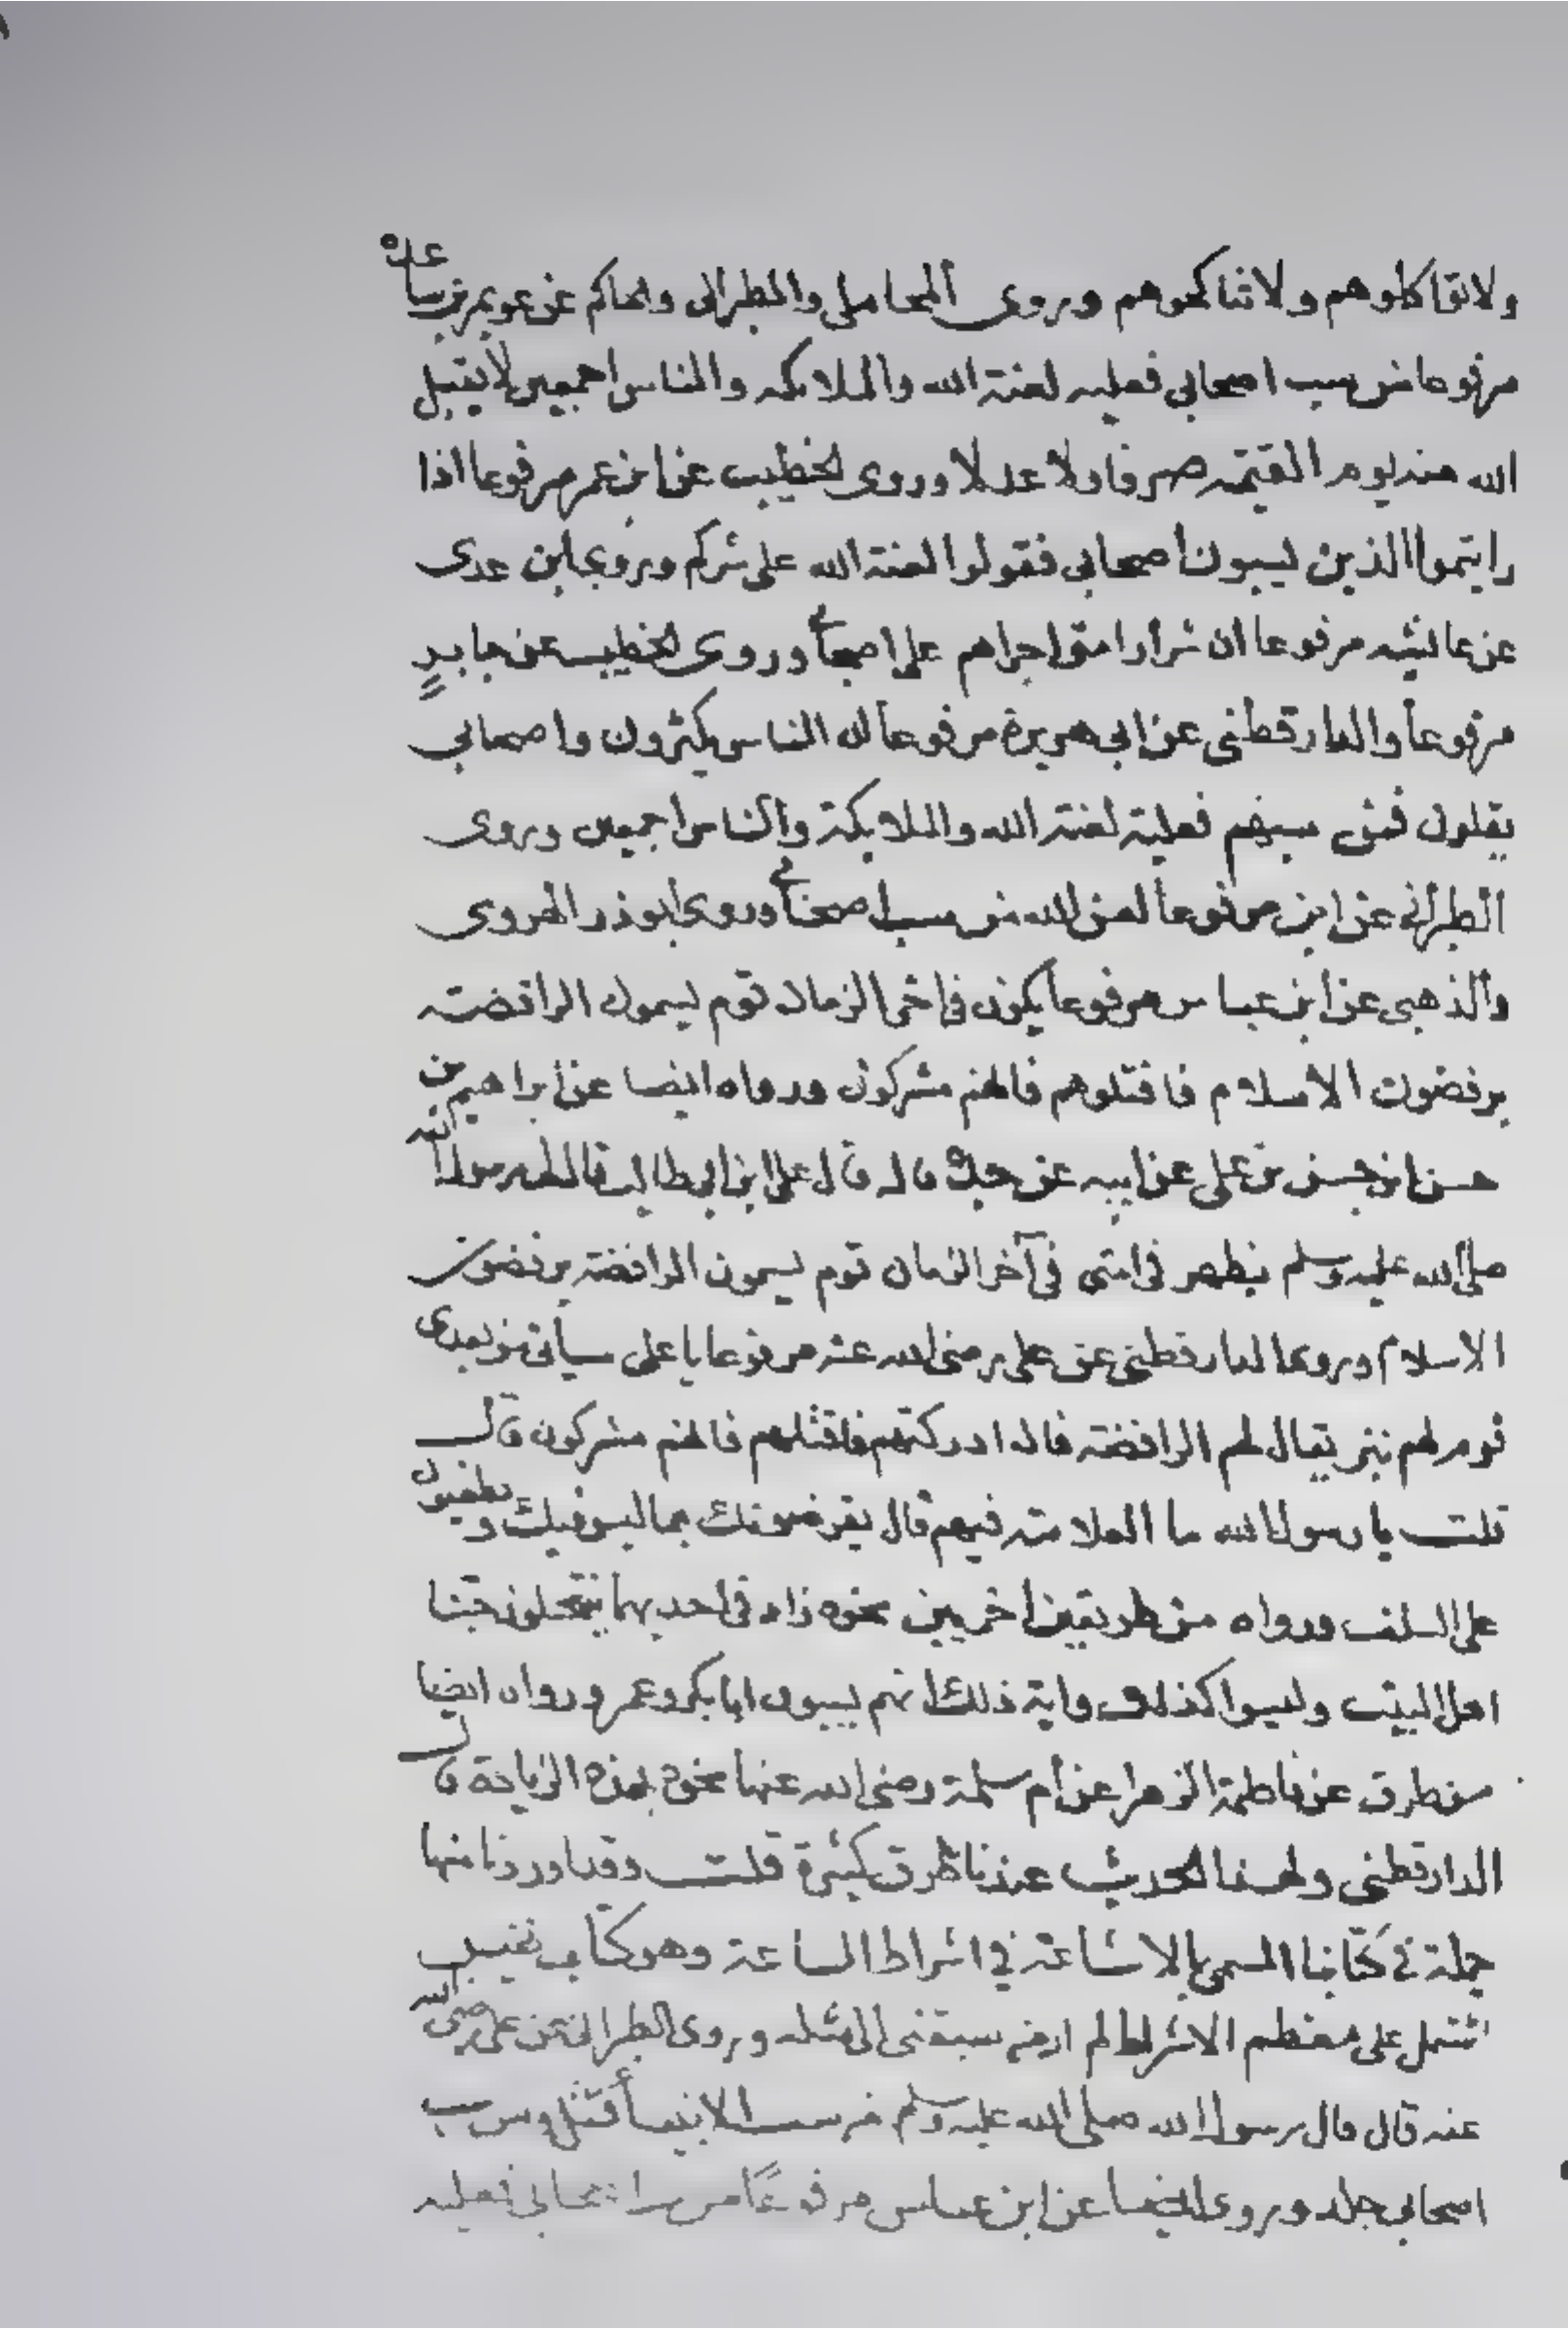 ولا تواكلوهم ولا تناكحوهم وروى المحاملى والطبرانى والحاكم عن عويمر بن ساعده
مرفوعا من سب اصحابى فعليه لعنة الله والملائكه والناس اجمعين لا يقبل
الله منه يوم القيمه صرفا ولا عدلا وروى الخطيب عن ابن عمر مرفوعا اذا
رايتموا الذين يسبون اصحابى فقولوا لعنة الله على شركم وروى ابن عدى
عن عائشه مرفوعا ان شرار امتى اجراهم على اصحابى وروى الخطيب عن جابر
مرفوعا والدارقطنى عن ابى هريرة مرفوعا ان الناس يكثرون واصحابى
يقلون فمن سبهم فعلية لعنة الله والملايكة والناس اجمعين وروى
الطبرانى عن ابن مرفوعا لعن الله من سب اصحابى وروى ابو ذر الهروى
والذهبى عن ابن عباس مرفوعا يكون فى اخر الزمان قوم يسمون الرافضه
يرفضون الاسلام فاقتلوهم فانهم مشركون ورواه ايضا عن ابراهيم بن
حسن ابن حسن بن على عن ابيه عن جده قال قال على ابن ابى طالب قال رسول الله
صلى الله عليه وسلم يظهر فى امتى فى آخر الزمان قوم يسمون الرافضة يرفضون
الاسلام وروى الدارقطنى عن على رضى الله عنه مرفوعا يا على سيأتى من بعدى
قوم لهم نبز يقال لهم الرافضه فان ادركتهم فاقتلهم فانهم مشركون قال
قلت يا رسول الله ما العلامته فيهم قال يقرضونك بما ليس فيك ويطعنون
على السلف ورواه من طريقين اخريين نحوه زاد فى احديهما ينتحلون حبنا
اهل البيت وليسوا كذلك واية ذلك انهم يسبون ابا بكر وعمر ورواه ايضا
من طرق عن فاطمة الزهرا عن أم سلمة رضى الله عنها نحوه بهذه الزيادة قال
الدارقطنى ولهذا الحديث عندنا طرق كثيرة قلت وقد اوردنا منها
جملة فى كتابنا المسمى بالاشاعة فى اشراط الساعة وهو كتاب نفيس
اشتمل على معظم الاشراط لم ارمن سبقنى الى مثله وروى الطبرانى عن على رضى الله
عنه قال قال رسول الله صلى الله عليه وسلم من سب الانبيأ قتل ومن سب
اصحابى جلد وروى ايضا عن ابن عباس مرفوعا من سب اصحابى فعليه